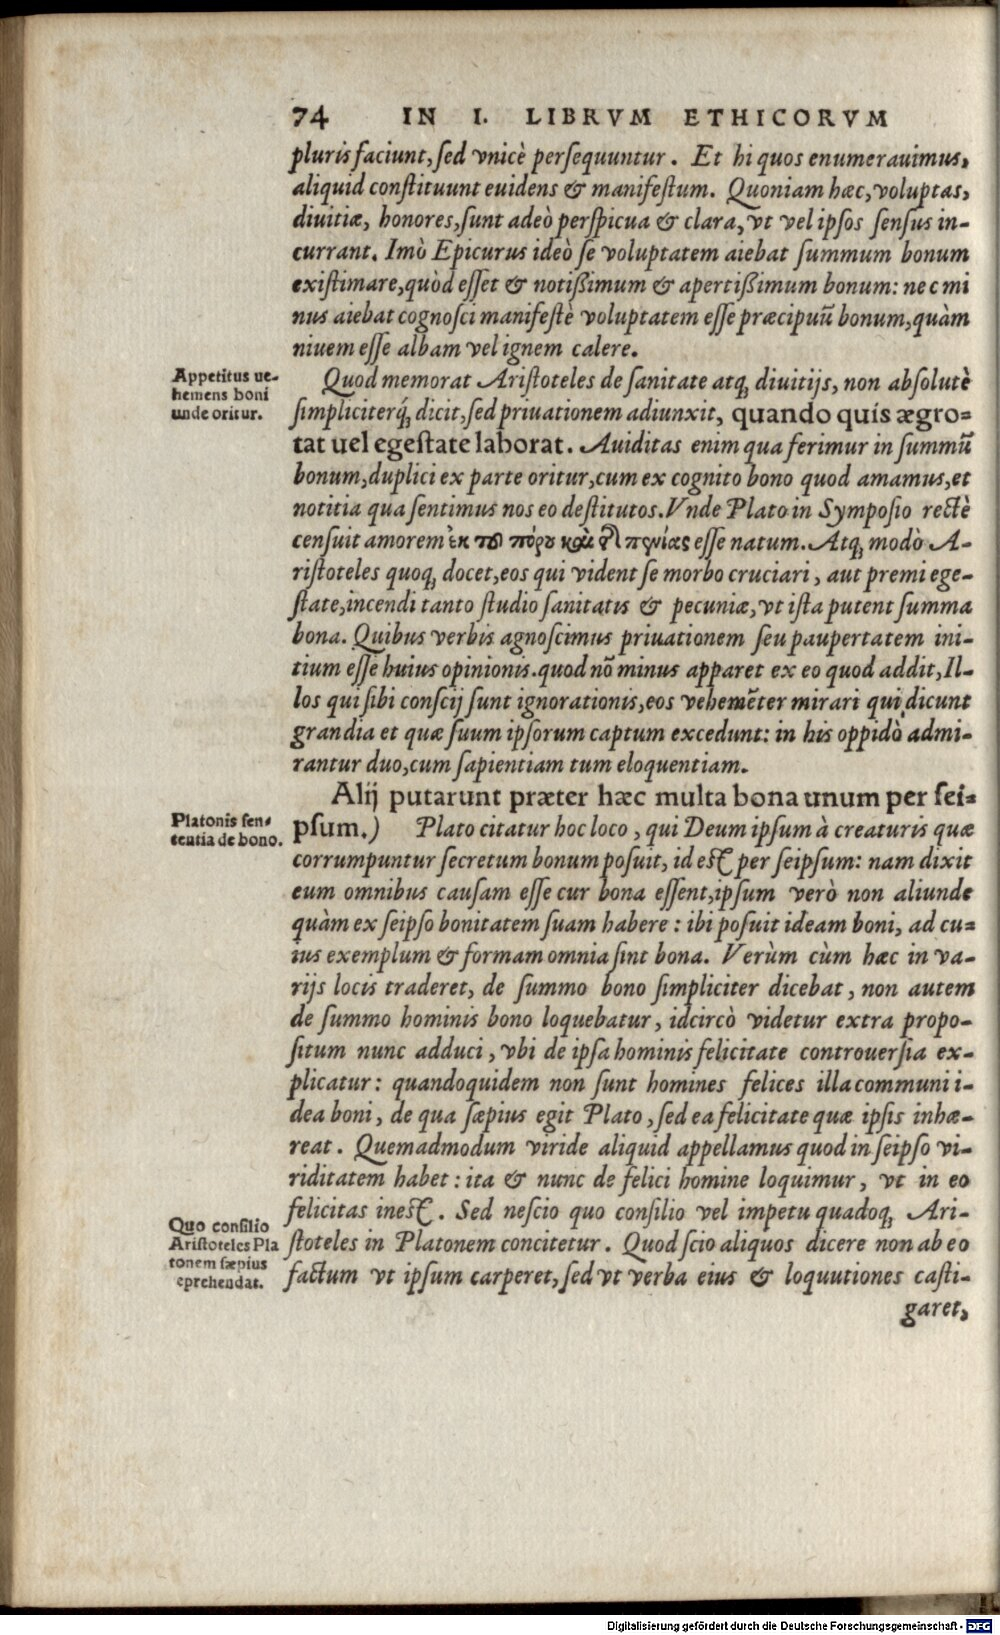 74 IN I. LIBRVM ETHICORVM
pluris faciunt, ſed vnicè perſequuntur. Et hi quos enumerauimus,
aliquid conſtituunt euidens & manifeſtum. Quoniam hæc, voluptas,
diuitiæ, honores, ſunt adeò perſpicua & clara, vt vel ipſos ſenſus in-
currant. Imò Epicurus ideò ſe voluptatem aiebat ſummum bonum
exiſtimare, quòd eſſet & notißimum & apertißimum bonum: nec mi
nus aiebat cognoſci manifeſtè voluptatem eſſe præcipuũ bonum, quàm
niuem eſſe albam vel ignem calere.
Appetitus ue-
hemens boni
unde oritur.
Quod memorat Ariſtoteles de ſanitate atq; diuitijs, non abſolutè
ſimpliciterq́; dicit, ſed priuationem adiunxit, quando quis ægro-
tat uel egeſtate laborat. Auiditas enim qua ferimur in ſummũ
bonum, duplici ex parte oritur, cum ex cognito bono quod amamus, et
notitia qua ſentimus nos eo deſtitutos. Vnde Plato in Sympoſio rectè
cenſuit amorem ἐκ τοῦ πόρου καὶ τῆς πενίας eſſe natum. Atq; modò A-
riſtoteles quoq; docet, eos qui vident ſe morbo cruciari, aut premi ege-
ſtate, incendi tanto ſtudio ſanitatis & pecuniæ, vt iſta putent ſumma
bona. Quibus verbis agnoſcimus priuationem ſeu paupertatem ini-
tium eſſe huius opinionis. quod nõ minus apparet ex eo quod addit, Il-
los qui ſibi conſcij ſunt ignorationis, eos vehemẽter mirari qui dicunt
grandia et quæ ſuum ipſorum captum excedunt: in his oppidò admi-
rantur duo, cum ſapientiam tum eloquentiam.
Alij putarunt præter hæc multa bona unum per ſei-
Platonis ſen-
tentia de bono.
pſum.) Plato citatur hoc loco, qui Deum ipſum à creaturis quæ
corrumpuntur ſecretum bonum poſuit, id eſt per ſeipſum: nam dixit
eum omnibus cauſam eſſe cur bona eſſent, ipſum verò non aliunde
quàm ex ſeipſo bonitatem ſuam habere: ibi poſuit ideam boni, ad cu-
ius exemplum & formam omnia ſint bona. Verùm cùm hæc in va-
rijs locis traderet, de ſummo bono ſimpliciter dicebat, non autem
de ſummo hominis bono loquebatur, idcircò videtur extra propo-
ſitum nunc adduci, vbi de ipſa hominis felicitate controuerſia ex-
plicatur: quandoquidem non ſunt homines felices illa communi i-
dea boni, de qua ſæpius egit Plato, ſed ea felicitate quæ ipſis inhæ-
reat. Quemadmodum viride aliquid appellamus quod in ſeipſo vi-
riditatem habet: ita & nunc de felici homine loquimur, vt in eo
felicitas ineſt. Sed neſcio quo conſilio vel impetu quadoq; Ari-
Quo conſilio
Ariſtoteles Pla
tonem ſæpius
eprehendat.
ſtoteles in Platonem concitetur. Quod ſcio aliquos dicere non ab eo
factum vt ipſum carperet, ſed vt verba eius & loquutiones caſti-
garet,
Digitalisierung gefördert durch die Deutsche Forschungsgemeinschaft - DFG